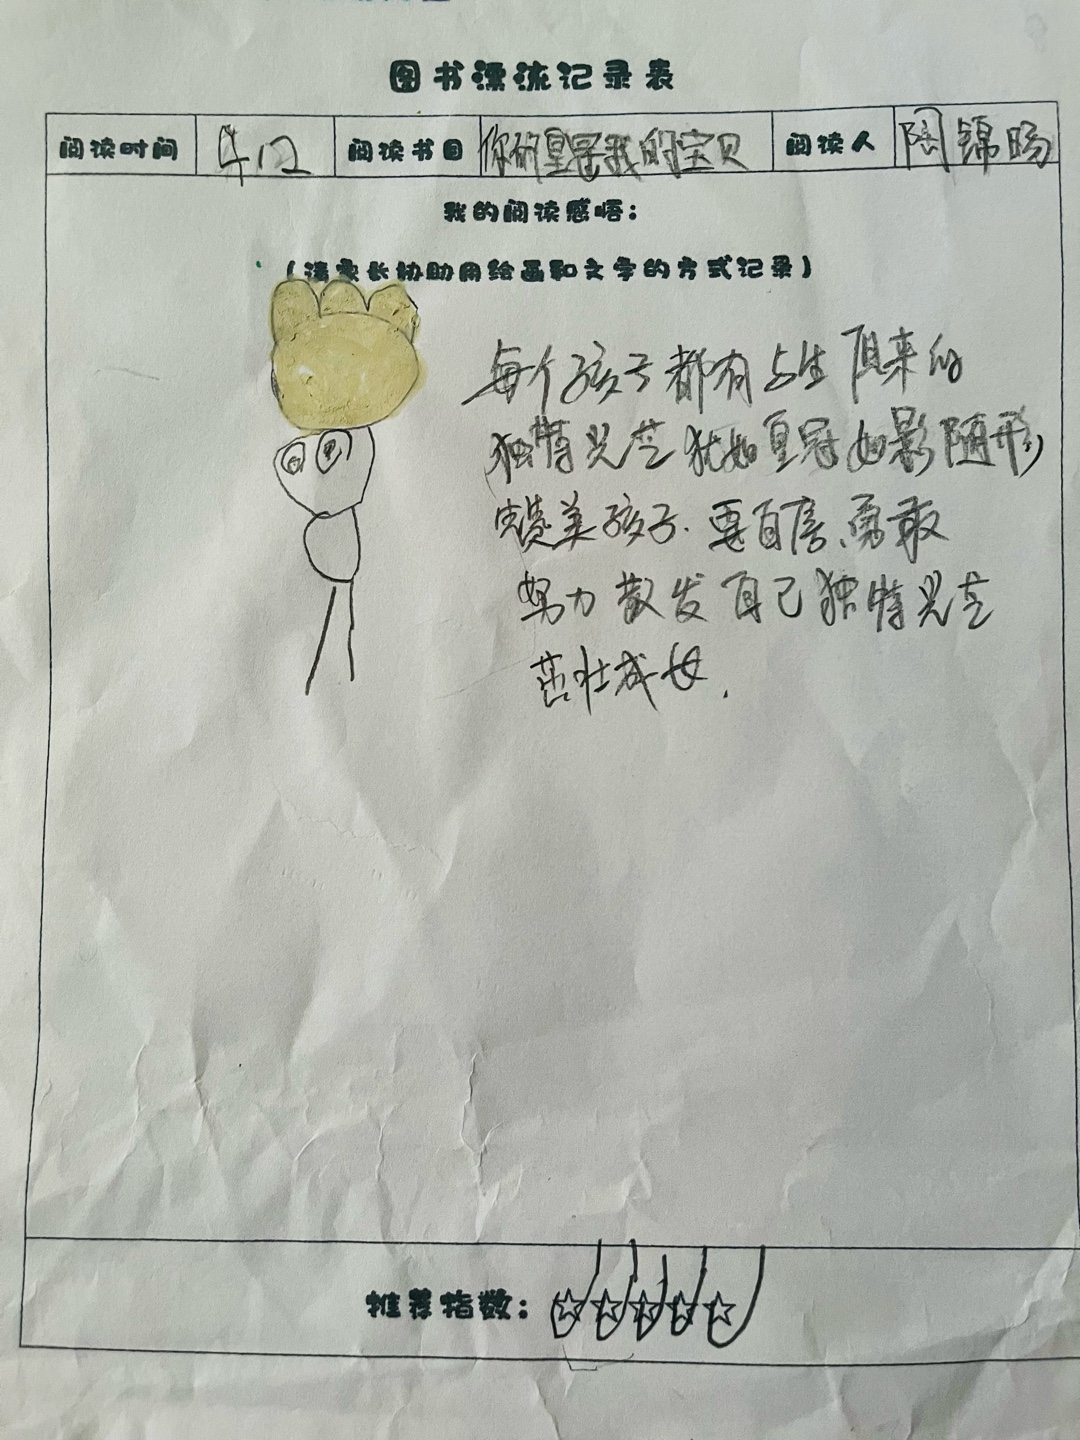 图书漂流记录表
阅读时间 4.12 阅读书目 你的皇冠我的宝贝 阅读人 陶锦旸
我的阅读感悟：
（请家长协助用绘画和文字的方式记录）
每个孩子都有与生俱来的
独特光芒犹如皇冠如影随形，
赞美孩子.要自信、勇敢
努力散发自己独特光芒
茁壮成长.
推荐指数：☆☆☆☆☆